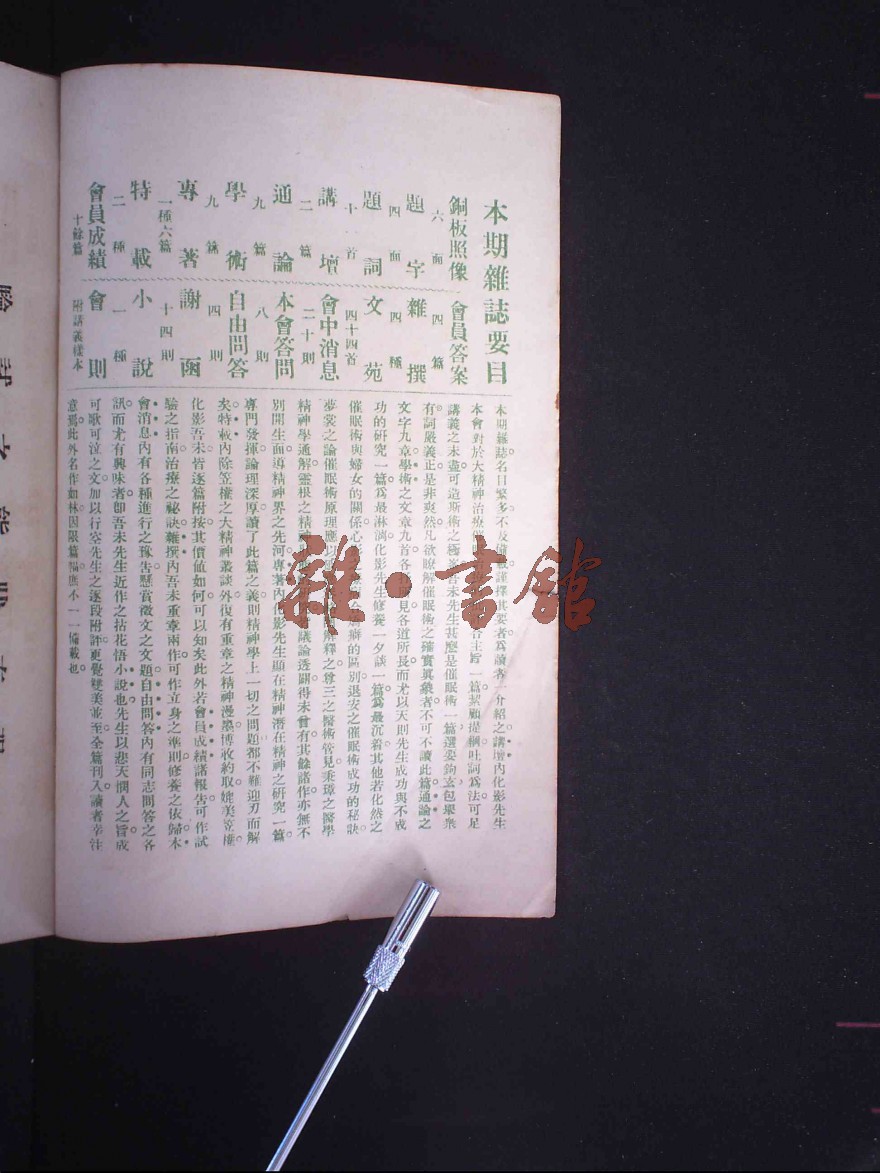 本期雜誌要目
銅板照像 六面
題字 四面
題詞 十一首
講壇 二篇
通論 九篇
學術 九篇
專著 一種六篇
特載 二種
會員成績 十餘篇
會員答案 四篇
雜撰 四種
文苑 四十四首
會中消息 二十則
本會答問 八則
自由問答 四則
謝函 十四則
小說 一種
會則 附講義樣本
本期雜誌名目繁多不及備載謹擇其要者為讀者一介紹之講壇內化影先生
本會對於大精神治療催眠 主旨一篇絜顧提綱吐詞為法可足
講義之未盡可造斯術之極善吾未先生甚麼是催眠術一篇選要鉤玄包羅衆
有詞嚴義正是非爽然凡欲瞭解催眠術之確實真象者不可不讀此篇通論之
文字九章學術之文章九首各 見各道所長而尤以天則先生成功與不成
功的研究一篇為最淋漓化影先生修養一夕談一篇為最沉着其他若化然之
催眠術與婦女的關係心 的區別退安之催眠術成功的秘訣
夢裳之論催眠術原理應以 解釋之尊三之醫術管見秉璋之醫學
精神學通解靈根之精神 議論透闢得未曾有其餘諸作亦無不
別開生面導精神界之先河專著內化影先生顯在精神潛在精神之研究一篇
專門發揮論理深厚讀了此篇之義則精神學上一切之問題都不難迎刃而解
矣特載內除笠權之大精神叢談外復有重章之精神漫墨博收約取媲美笠權
化影吾未皆逐篇附按其價値如何可以知矣此外若會員成績諸報告可作試
驗之指南治療之秘訣雜撰內吾未重章兩作可作立身之準則修養之依歸本
會消息內有各種進行之豫告懸賞徵文之文題自由問答內有同志問答之各
訊而尤有興味者卽吾未先生近作之拈花悟小說也先生以悲天憫人之旨成
可歌可泣之文加以行容先生之逐段附評更覺雙美並至全篇刊入讀者幸注
意焉此外名作如林因限篇幅應不一一備載也
雜·書館